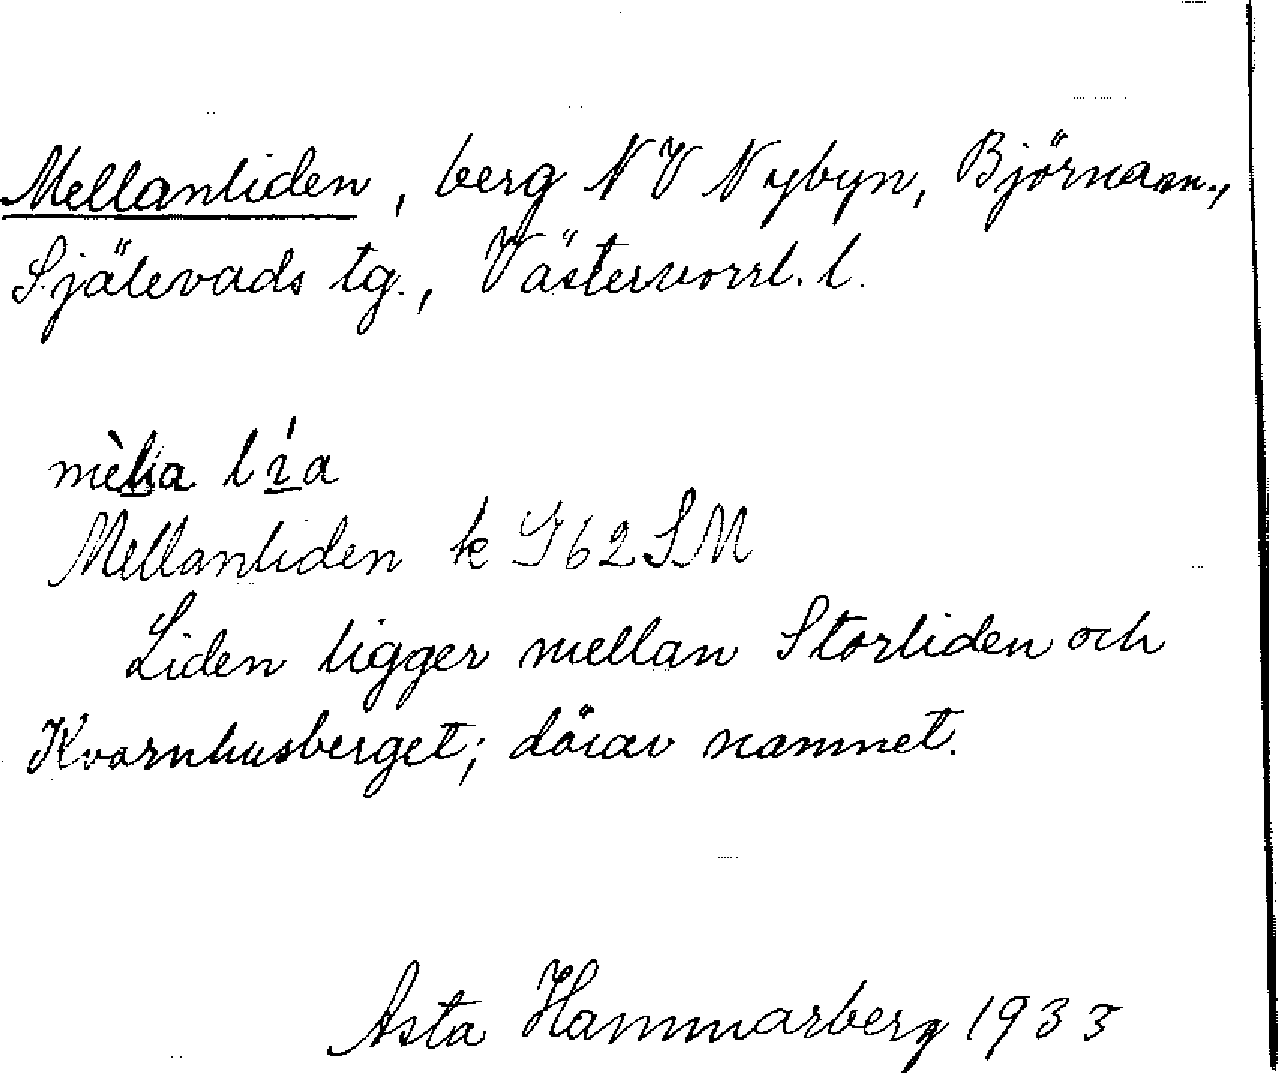 Mellanliden, berg NV Nybyn, Björnasn.,
Själevads tg., Västernorrl. l.
Mellanliden k J62SM
Liden ligger mellan Storliden och
Kvarnhusberget; därav namnet.
Asta Hammarberg 1933